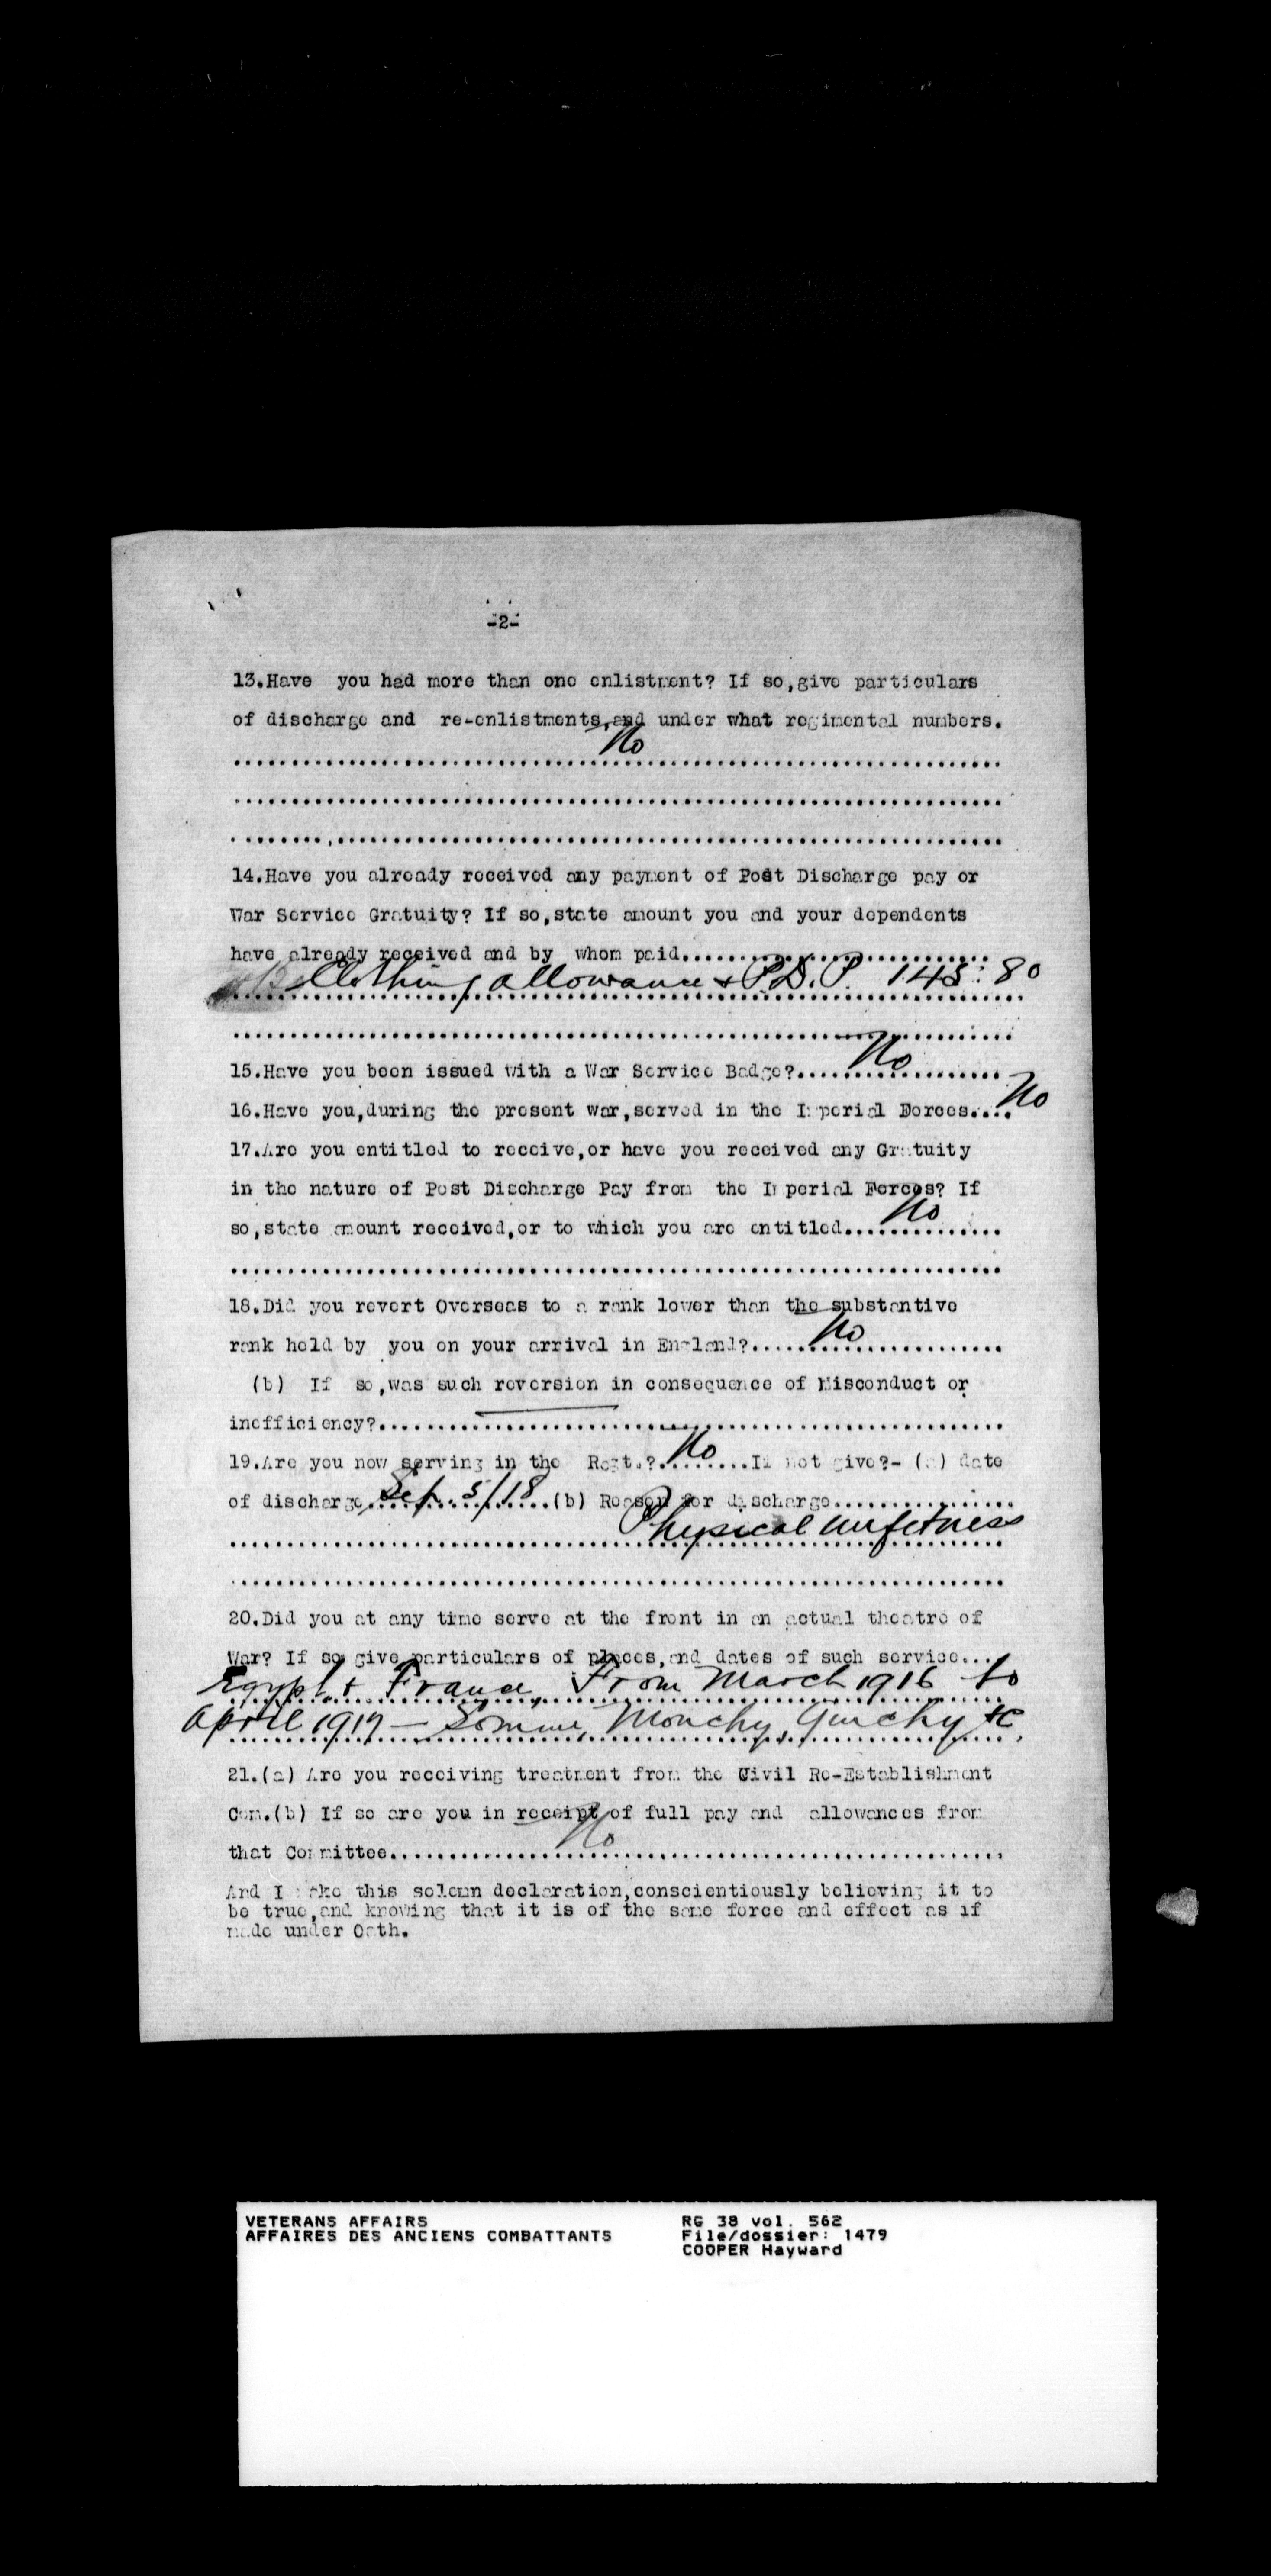 -2-
13.Have you had more than one enlistment? If so,give particulars
of discharge and re-enlistments,and under what regimental numbers.
No
14.Have you already received any payment of Post Discharge pay or
War Service Gratuity? If so,state amount you and your dependents
have already received and by whom paid...........................
Clothing allowance + P.D.P. 143:80
15.Have you been issued with a War Service Badge?.....No...........
16.Have you,during the present war,served in the Imperial Forces....No
17.Are you entitled to receive,or have you received any Gratuity
in the nature of Post Discharge Pay from the Imperial Forces? If
so,state amount received,or to which you are entitled....No........
18.Did you revert Overseas to a rank lower than the substantive
rank held by you on your arrival in England?......No..............
(b) If so,was such reversion in consequence of Misconduct or
inefficiency?......................................................
19.Are you now serving in the Regt.?..No......If not give?- (a) date
of discharge Sep. 5/18 (b) Reason for discharge................
Physical unfitness
20.Did you at any time serve at the front in an actual theatre of
War? If so give particulars of places,and dates of such service...
Egypt & France, From March 1916 to
April 1917 — Somme, Monchy, Guechy &c
21.(a) Are you receiving treatment from the Civil Re-Establishment
Com.(b) If so are you in receipt of full pay and allowances from
that Committee................No..................................
And I make this solemn declaration,conscientiously believing it to
be true,and knowing that it is of the same force and effect as if
made under Oath.
VETERANS AFFAIRS
AFFAIRES DES ANCIENS COMBATTANTS
RG 38 vol. 562
File/dossier: 1479
COOPER Hayward